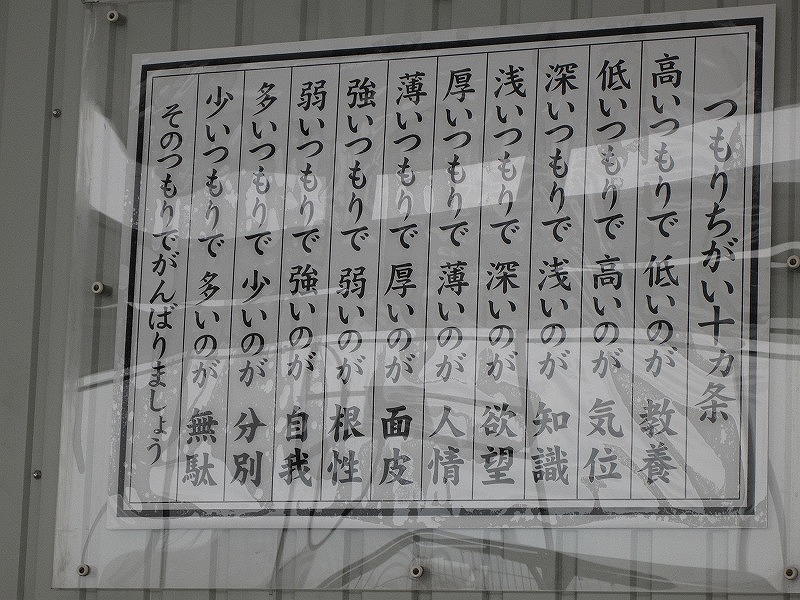 つもりちがい十カ条
高いつもりで 低いのが 教養
低いつもりで 高いのが 気位
深いつもりで 浅いのが 知識
浅いつもりで 深いのが 欲望
厚いつもりで 薄いのが 人情
薄いつもりで 厚いのが 面皮
強いつもりで 弱いのが 根性
弱いつもりで 強いのが 自我
多いつもりで 少いのが 分別
少いつもりで 多いのが 無駄
そのつもりでがんばりましょう